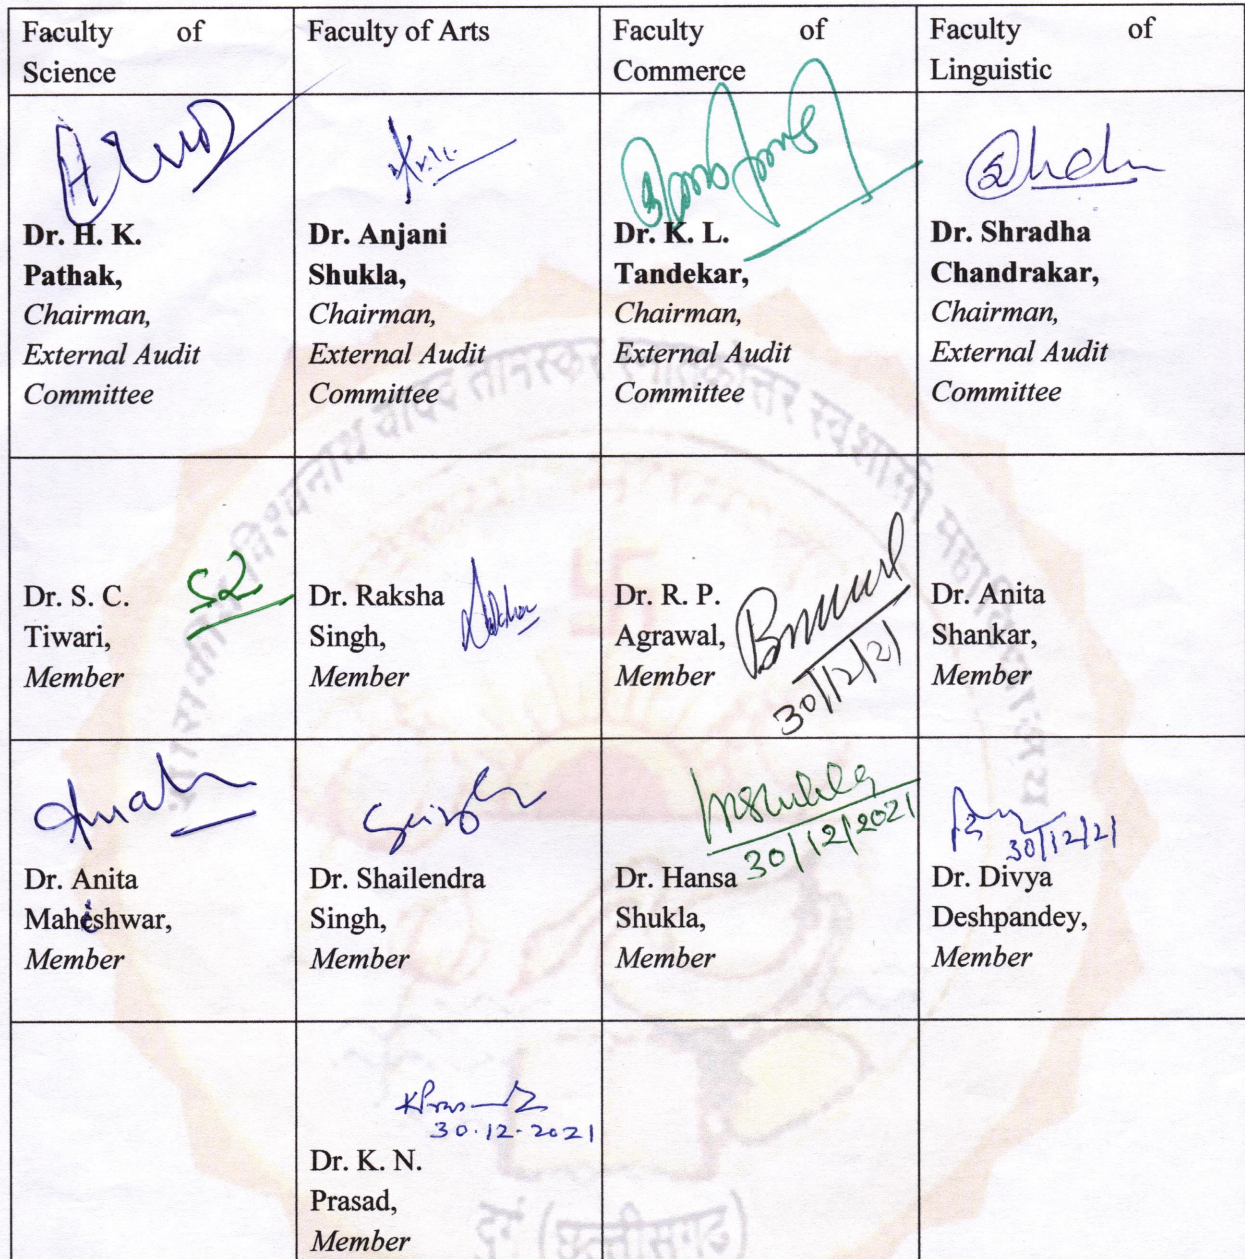 Faculty of
Science
Faculty of Arts
Faculty of
Commerce
Faculty of
Linguistic
Dr. H. K.
Pathak,
Chairman,
External Audit
Committee
Dr. Anjani
Shukla,
Chairman,
External Audit
Committee
Dr. K. L.
Tandekar,
Chairman,
External Audit
Committee
Dr. Shradha
Chandrakar,
Chairman,
External Audit
Committee
Dr. S. C.
Tiwari,
Member
Dr. Raksha
Singh,
Member
Dr. R. P.
Agrawal,
Member
30/12/21
Dr. Anita
Shankar,
Member
Dr. Anita
Maheshwar,
Member
Singh
Dr. Shailendra
Singh,
Member
HShukla
30/12/2021
Dr. Hansa
Shukla,
Member
30/12/21
Dr. Divya
Deshpandey,
Member
KPrasad
30.12.2021
Dr. K. N.
Prasad,
Member
दुर्ग (छत्तीसगढ़)